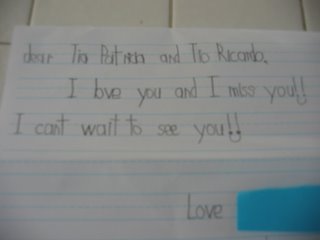 dear Tia Patricia and Tio Ricardo,
I love you and I miss you!!
I cant wait to see you!!
Love